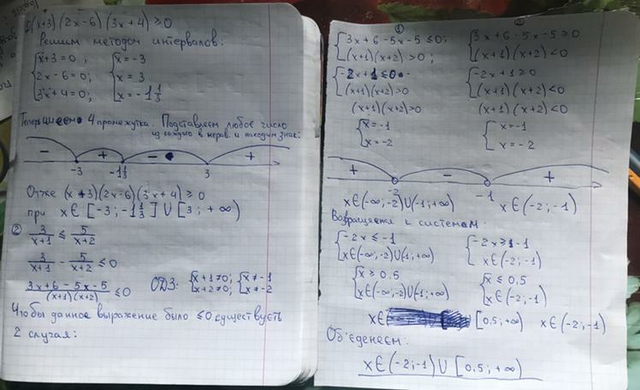 (x+3)(2x-6)(3x+4)≥0
Решим методом интервалов:
{x+3=0; {x=-3
{2x-6=0; {x=3
{3x+4=0; {x=-1 1/3
4 промежутка. Подставляем любое число
из каждого в нерав. и находим знак:
- + - +
-3 3
(x+3)(2x-6)(3x+4)≥0
при x∈[-3;-1 1/3]∪[3;+∞)
② 3/(x+1) ≤ 5/(x+2)
3/(x+1) - 5/(x+2) ≤0
(3x+6-5x-5)/((x+1)(x+2)) ≤0 ОДЗ: {x+1≠0; {x≠-1
{x+2≠0; {x≠-2
Чтобы данное выражение было ≤0 существует
2 случая:
{3x+6-5x-5≤0; {3x+6-5x-5≥0
{(x+1)(x+2)>0; {(x+1)(x+2)<0
{-2x+1≤0 {-2x+1≥0
{(x+1)(x+2)>0 {(x+1)(x+2)<0
(x+1)(x+2)>0 (x+1)(x+2)<0
{x=-1 {x=-1
{x=-2 {x=-2
+ - +
-2 -1
x∈(-∞;-2)∪(1;+∞) x∈(-2;-1)
Возвращаемся к системам:
{-2x≤-1 {-2x≥-1
{x∈(-∞;-2)∪(1;+∞) {x∈(-2;-1)
{x≥0.5 {x≤0.5
{x∈(-∞;-2)∪(1;+∞) {x∈(-2;-1)
x∈ [0.5;+∞) x∈(-2;-1)
Об'еденяем:
x∈(-2;-1)∪[0.5;+∞)